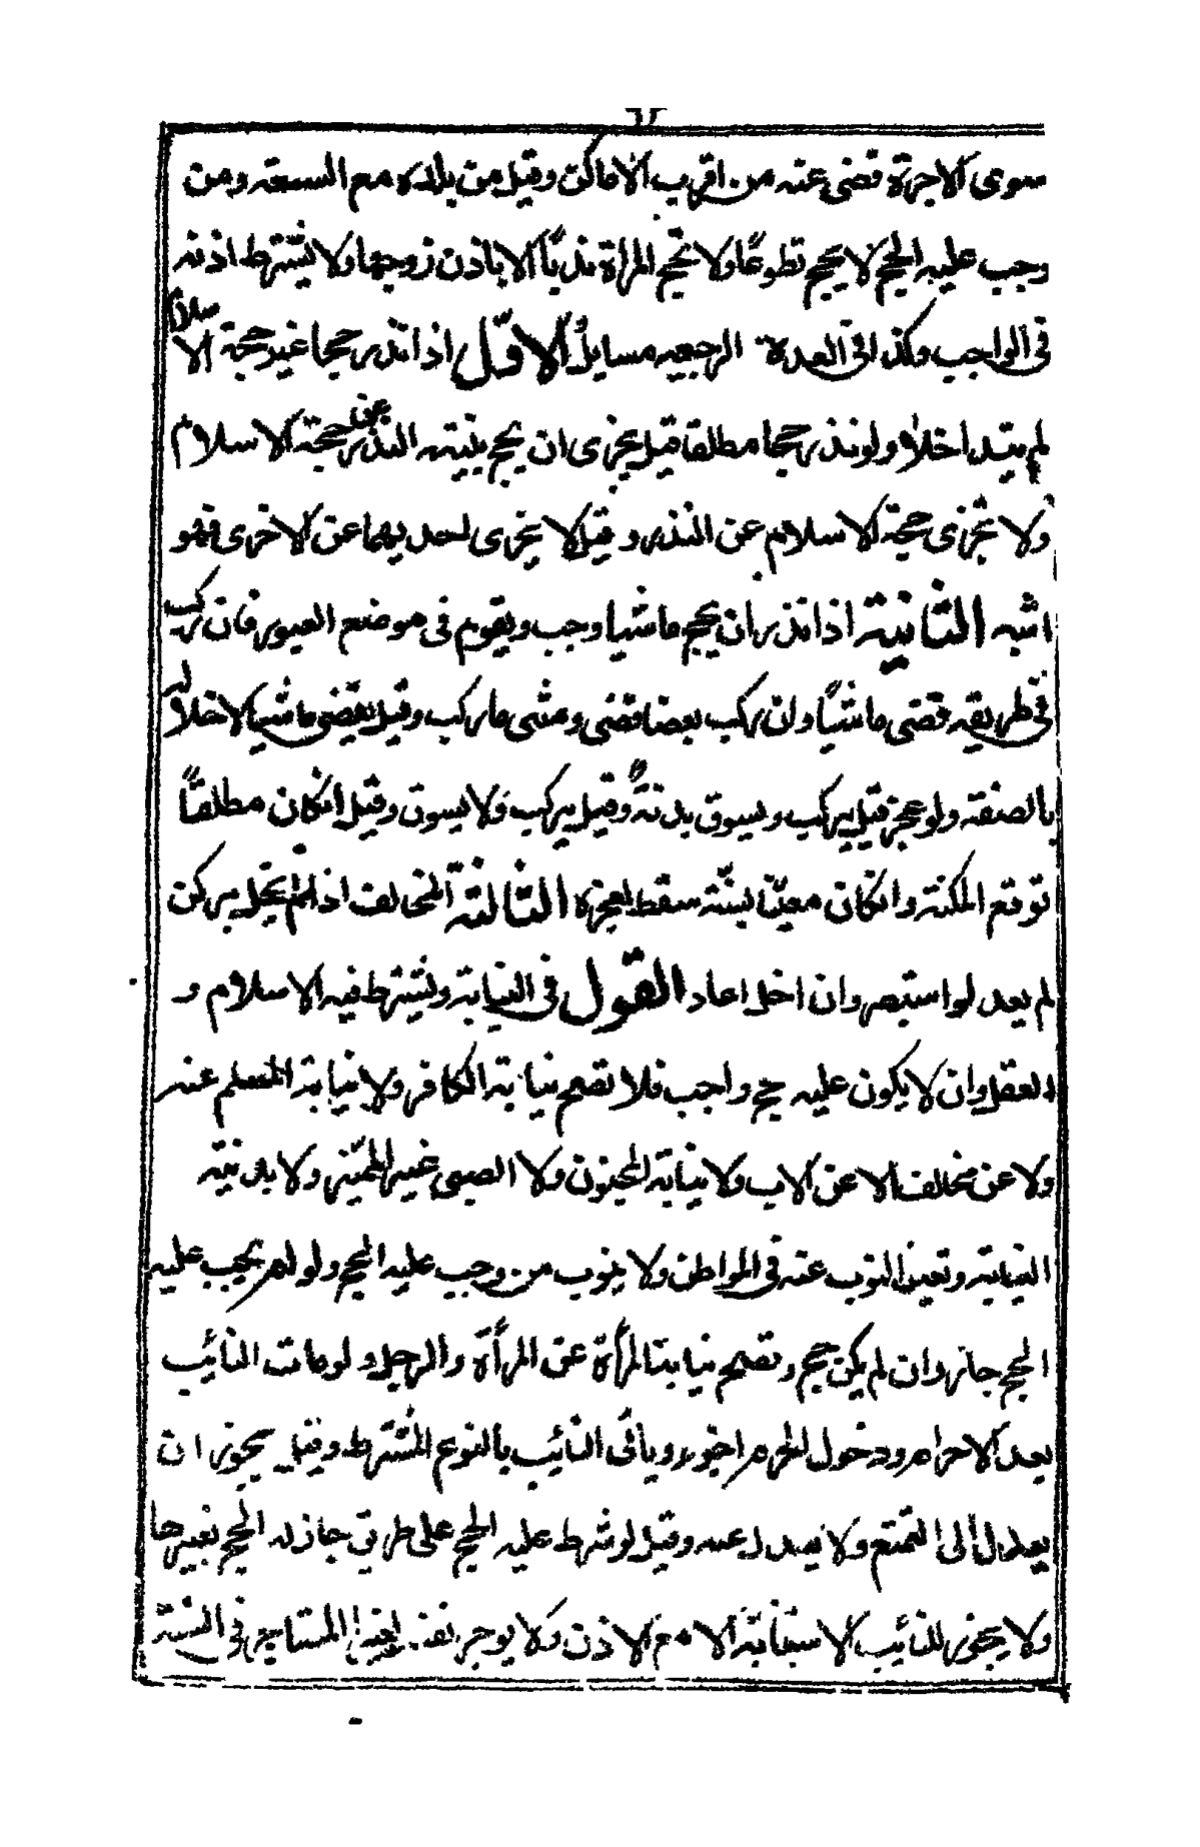 سوى الاجرة قضى عنه من اقرب الاماكن وقيل من بلده مع السعة ومن
وجب عليه الحج لا يحج تطوعًا ولا تحج المرأة ندبًا الا باذن زوجها ولا يشترط اذنه
فى الواجب وكذا فى العدة الرجعيه مسايل الاوّل اذا نذر حجا غير حجة الاسلام
لم يتداخلا ولو نذر حجا مطلقا قيل يجزى ان حج بنية النذر عن حجة الاسلام
ولا تجزى حجة الاسلام عن النذر وقيل لا يجزى احديهما عن الاخرى فهو
اشبه الثانية اذا نذر ان يحج ماشيا وجب ويقوم فى موضع العبور فان ركب
فى طريقه قضى ماشيًا وان ركب بعضا قضى ومشى ما ركب وقيل يقضى ماشيا لاخلاله
بالصفة ولو عجز قيل يركب ويسوق بدنةً وقيل يركب ولا يسوق وقيل ان كان مطلقًا
توقع المكنة وان كان معيّنا بسنّة سقط لعجزه الثالثة المخالف اذا لم يخل بركن
لم يعد لو استبصر وان اخل اعاد القول فى النيابة ويشترط فيه الاسلام و
العقل وان لا يكون عليه حج واجب فلا تصح نيابة الكافر ولا نيابة المسلم عنه
ولا عن مخالف الا عن الاب ولا نيابة المجنون ولا الصبى غير المميّز ولا بد نية
النيابة وتعين المنوب عنه فى المواطن ولا ينوب من وجب عليه الحج ولو لم يجب عليه
الحج جاز وان لم يكن حج وتصح نيابة المرأة عن المرأة والرجل ولو مات النائب
بعد الاحرام ودخول الحرم اجزء وياتى النائب بالنوع المشترط وقيل يجوز ان
يعدل الى التمتع ولا يعدل عنه وقيل لو شرط عليه الحج على طريق جاز له الحج بغيرها
ولا يجوز للنائب الاستنابة الا مع الاذن ولا يوجر نفسه لغير المستاجر فى السنة